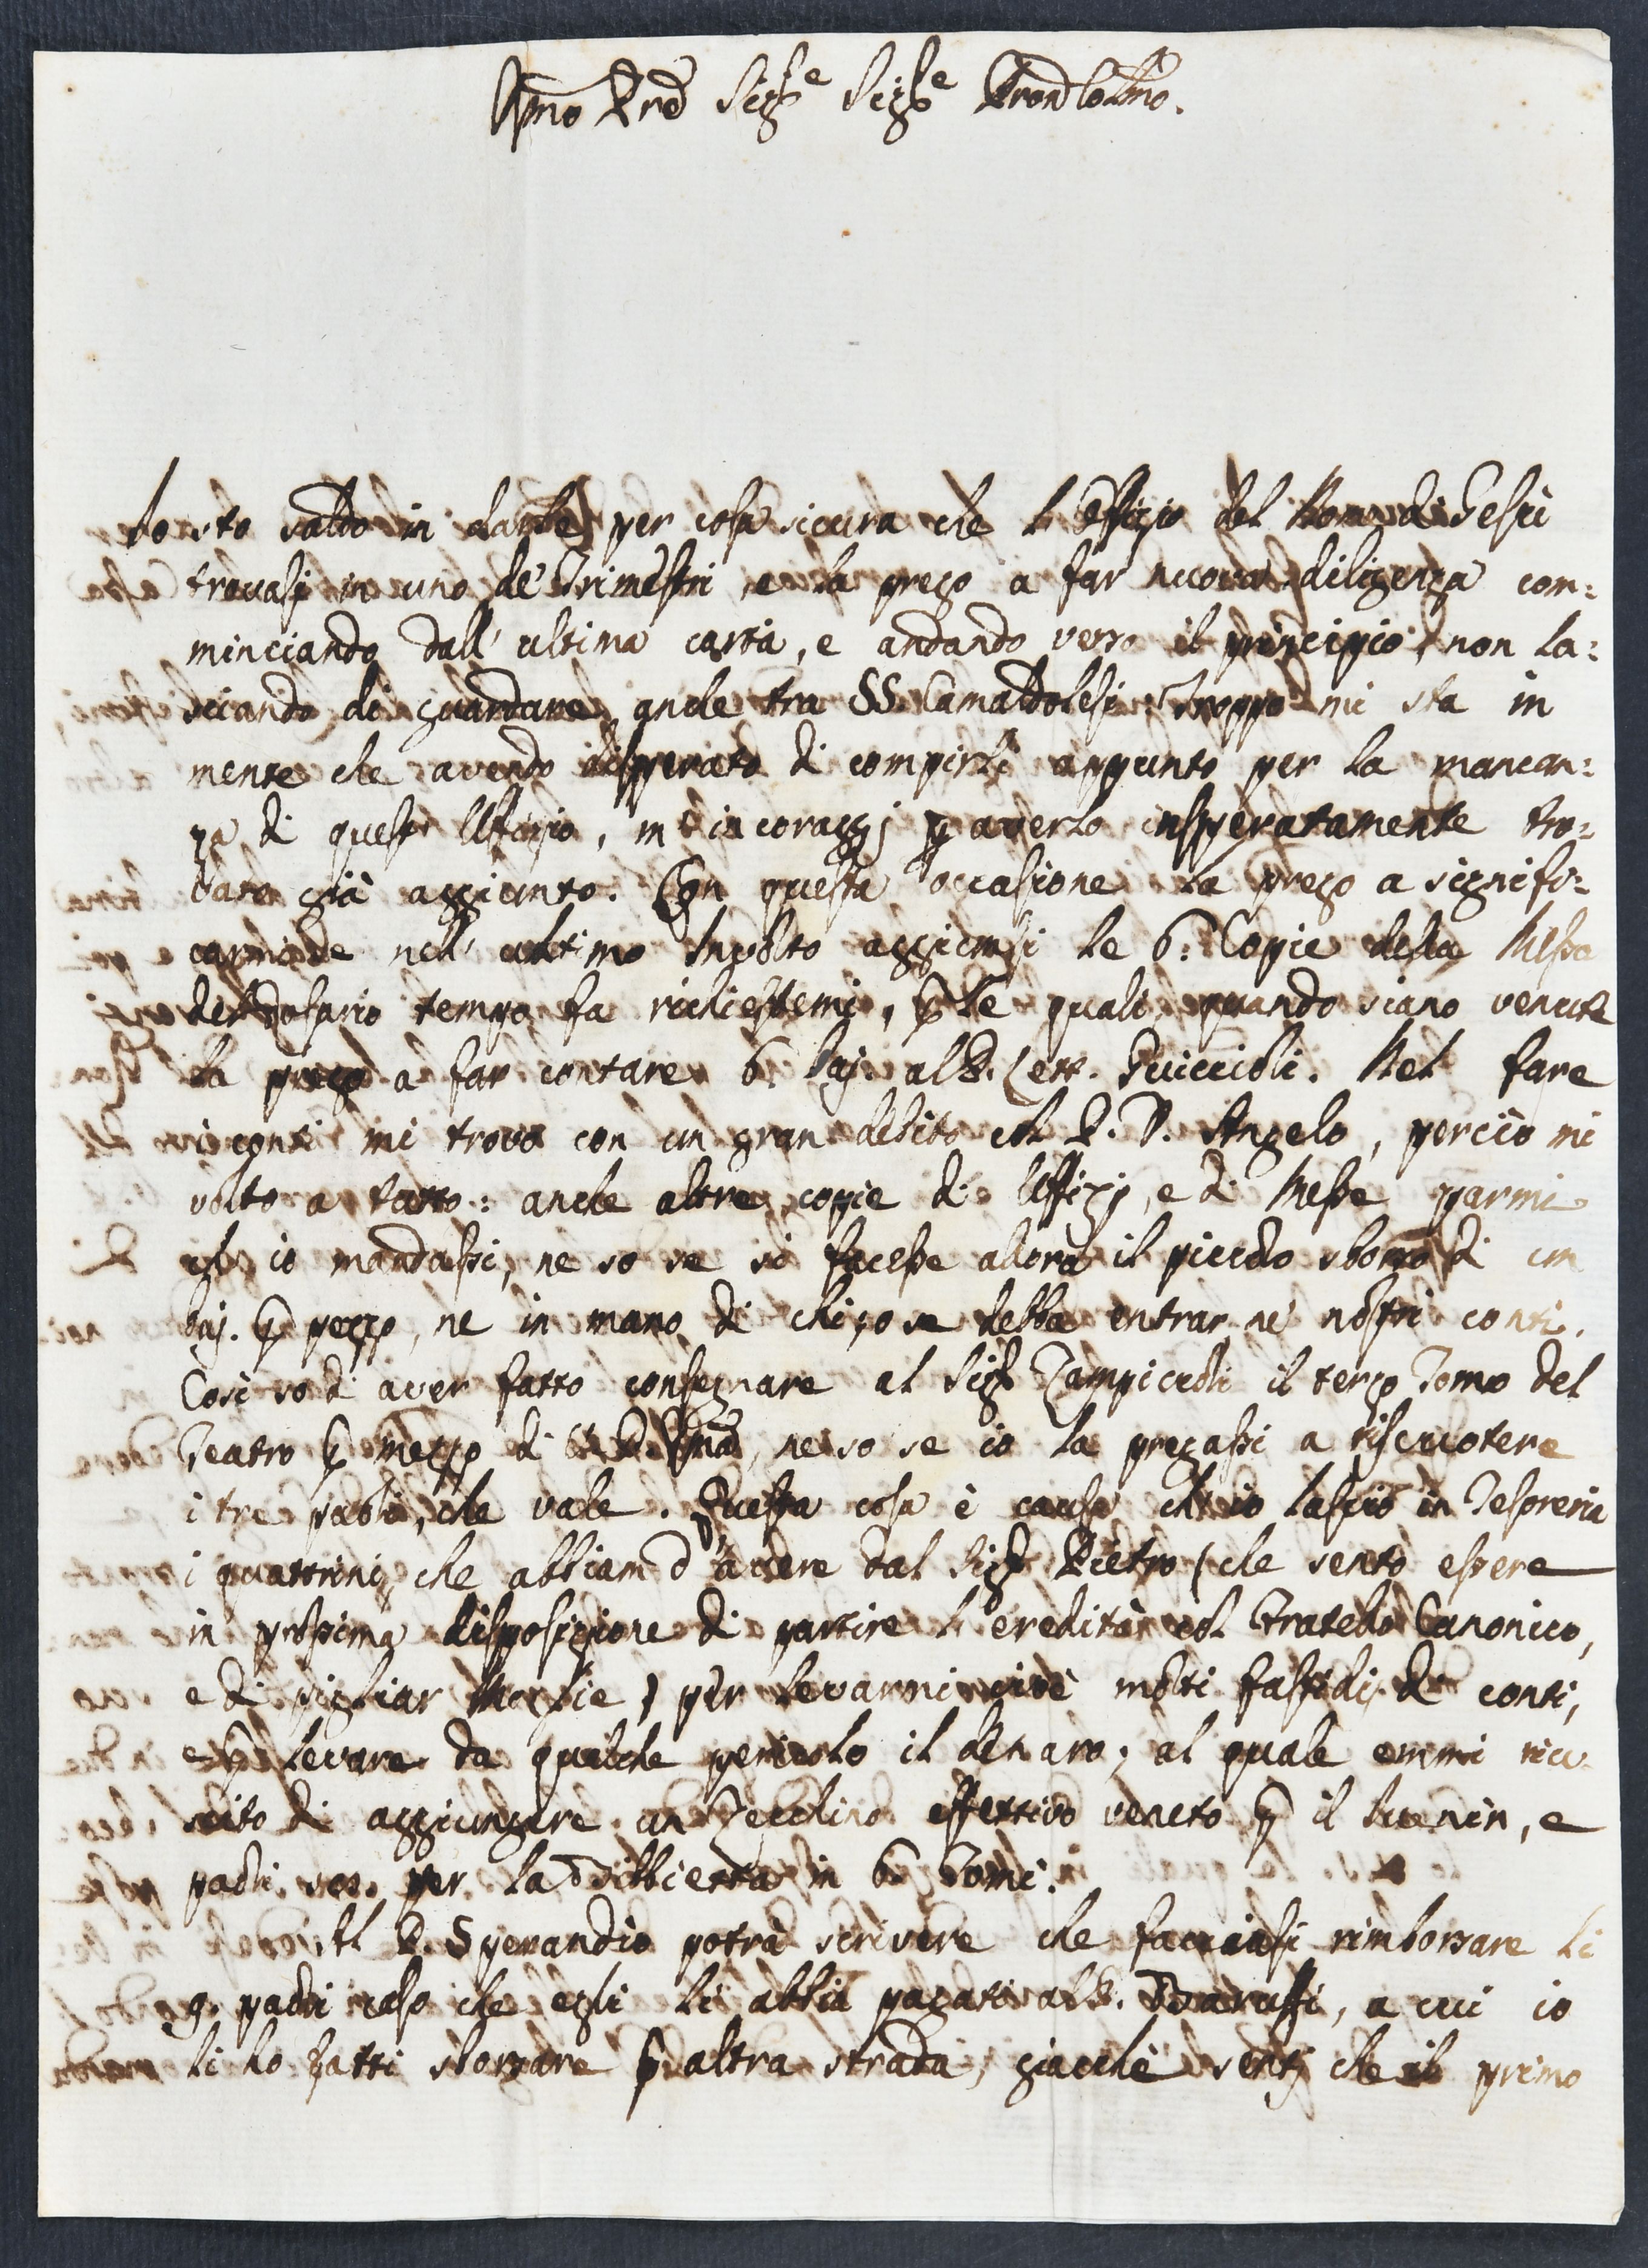 Illmo Sigre Sigre Pron Colmo.
Io sto saldo in darle per cosa sicura che l'Effizio del Nome di Gesù
trovasi in uno de' Trimestri, e la prego a far nuova diligenza com:
minciando dall' ultima carta, e andando verso il principio, non la:
sciando di guardare anche tra SS. Camaldolesi: Troppo mi sta in
mente che avendo disperato di compirli appunto per la mancan:
za di questo Uffizio, m'incoraggj p averlo insperatamente tro:
vato già aggiunto. Con questa occasione la prego a signifi:
carmi se nell' ultimo Involto aggiunsi le 6: Copie della Messa
del Rosario tempo fa richiestemi, p le quali, quando siano venute
la prego a far contare 6. baj. al S. Guiccioli. Nel fare
i conti mi trovo con un gran debito col P. D. Angelo, perciò mi
volto a tutto: anche altre copie di Uffizj, e di Messe parmi
ch' io mandassi, ne so se si facesse allora il piccolo sborso di un
baj. p pezzo, ne in mano di chi, o se debba entrar ne' nostri conti.
Così so di aver fatto consegnare al Sigr Zampiccoli il terzo Tomo del
Teatro p mezzo di, ne so se io la pregassi a riscuotere
i tre paoli, che vale. Questa cosa è causa ch' io lascio in Tesoreria
i quattrini, che abbiam d' avere dal Sigr Pietro (che sento essere
in prossima disposizione di partire l' eredità col Fratello Canonico,
e di pigliar Moglie) per levarmi cioè molti fastidj di conti,
e p levare da qualche pericolo il denaro; al quale emmi riu:
scito di aggiungere un Zecchino effettivo veneto p il, e
paoli per la in 6. Tomi.
Al P. Sperandio potrà scrivere che facciasi rimborsare li
9. paoli caso che egli li abbia pagati al S. Baruffi, a cui io
li ho fatti sborsare p altra strada, giacchè sentj che il primo